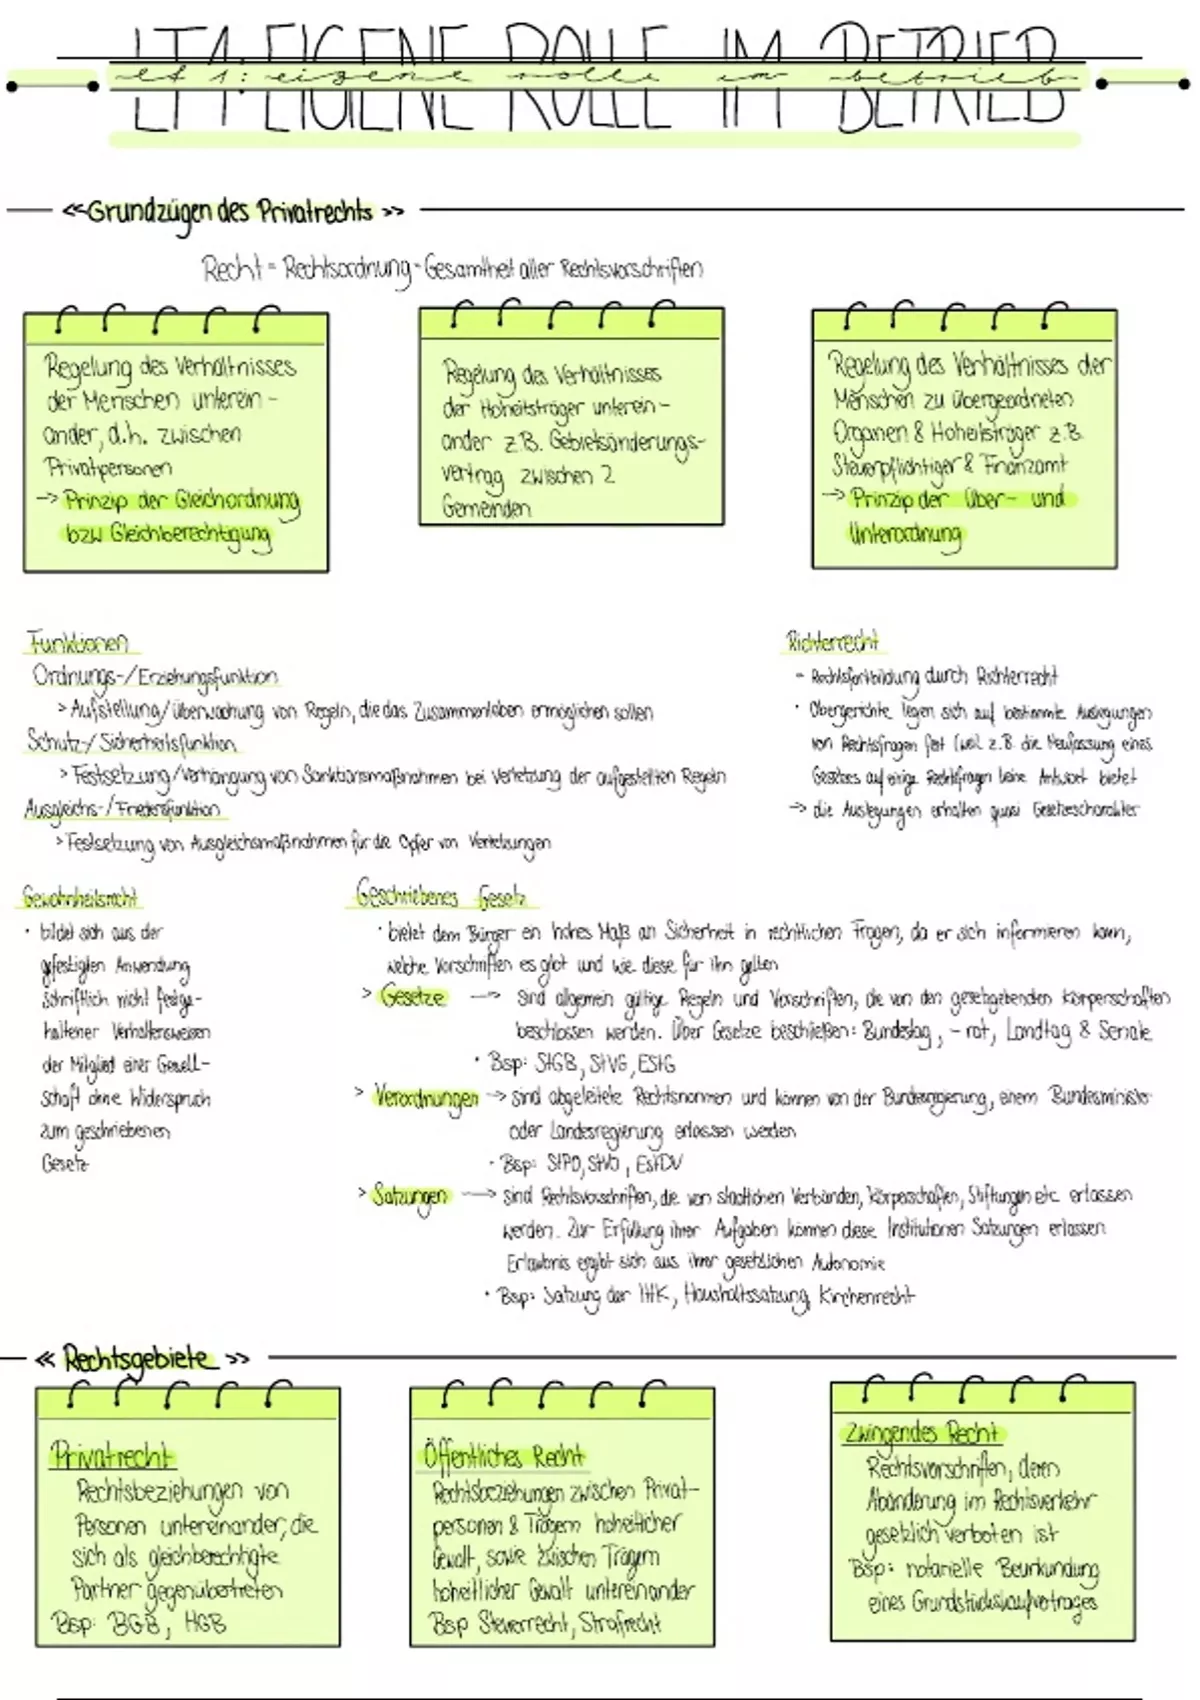 LF1: EIGENE ROLLE IM BETRIEB
lf 1: eigene rolle im betrieb
<<Grundzügen des Privatrechts >>
Recht = Rechtsordnung = Gesamtheit aller Rechtsvorschriften
Regelung des Verhältnisses
der Menschen unterein-
ander, d.h. zwischen
Privatpersonen
-> Prinzip der Gleichordnung
bzw Gleichberechtigung
Regelung des Verhältnisses
der Hoheitsträger unterein-
ander z.B. Gebietsänderungs-
vertrag zwischen 2
Gemeinden
Regelung des Verhältnisses der
Menschen zu übergeordneten
Organen & Hoheitsträger z.B.
Steuerpflichtiger & Finanzamt
-> Prinzip der Über- und
Unterordnung
Funktionen
Ordnungs-/Erziehungsfunktion
> Aufstellung/Überwachung von Regeln, die das Zusammenleben ermöglichen sollen
Schutz-/Sicherheitsfunktion
> Festsetzung/Verhängung von Sanktionsmaßnahmen bei Verletzung der aufgestellten Regeln
Ausgleichs-/Friedensfunktion
> Festsetzung von Ausgleichsmaßnahmen für die Opfer von Verletzungen
Richterrecht
- Rechtsfortbildung durch Richterrecht
· Obergerichte legen sich auf bestimmte Auslegungen
von Rechtsfragen fest (weil z.B. die Neufassung eines
Gesetzes auf einige Rechtsfragen keine Antwort bietet
-> die Auslegungen erhalten quasi Gesetzescharakter
Gewohnheitsrecht
· bildet sich aus der
gefestigten Anwendung
schriftlich nicht festge-
haltener Verhaltensweisen
der Mitglied einer Gesell-
schaft ohne Widerspruch
zum geschriebenen
Gesetz
Geschriebenes Gesetz
· bietet dem Bürger en hohes Maß an Sicherheit in rechtlichen Fragen, da er sich informieren kann,
welche Vorschriften es gibt und wie diese für ihn gelten
> Gesetze -> sind allgemein gültige Regeln und Vorschriften, die von den gesetzgebenden Körperschaften
beschlossen werden. Über Gesetze beschließen: Bundestag, -rat, Landtag & Senate
· Bsp: StGB, StVG, EStG
> Verordnungen -> sind abgeleitete Rechtsnormen und können von der Bundesregierung, einem Bundesminister
oder Landesregierung erlassen werden
· Bsp: StPO, StVO, EStDV
> Satzungen -> sind Rechtsvorschriften, die von staatlichen Verbänden, Körperschaften, Stiftungen etc. erlassen
werden. Zur Erfüllung ihrer Aufgaben können diese Institutionen Satzungen erlassen
Erlaubnis ergibt sich aus ihrer gesetzlichen Autonomie
· Bsp: Satzung der IHK, Haushaltssatzung, Kirchenrecht
<< Rechtsgebiete >>
Privatrecht
Rechtsbeziehungen von
Personen untereinander, die
sich als gleichberechtigte
Partner gegenübertreten
Bsp: BGB, HGB
Öffentliches Recht
Rechtsbeziehungen zwischen Privat-
personen & Trägern hoheitlicher
Gewalt, sowie zwischen Trägern
hoheitlicher Gewalt untereinander
Bsp Steuerrecht, Strafrecht
Zwingendes Recht
Rechtsvorschriften, deren
Abänderung im Rechtsverkehr
gesetzlich verboten ist
Bsp: notarielle Beurkundung
eines Grundstückskaufvertrages